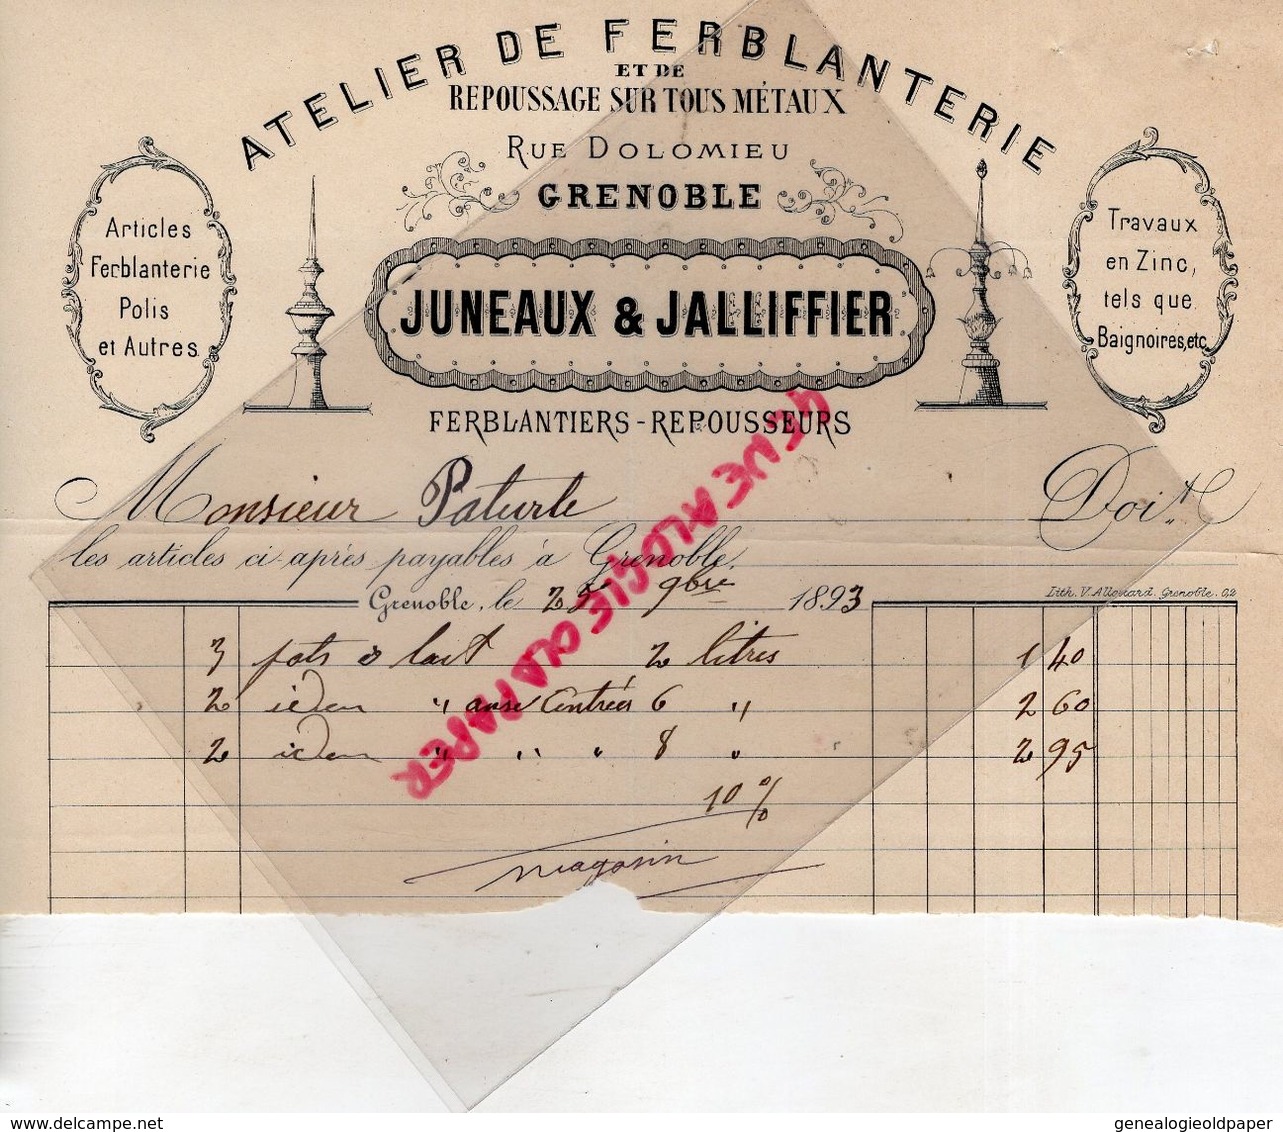 ATELIER DE FERBLANTERIE
ET DE
REPOUSSAGE SUR TOUS MÉTAUX
RUE DOLOMIEU
GRENOBLE
Articles
Ferblanterie
Polis
et Autres
Travaux
en Zinc,
tels que
Baignoires, etc
JUNEAUX & JALLIFFIER
FERBLANTIERS-REPOUSSEURS
Monsieur Paturle Doit
les articles ci-après payables à Grenoble.
Grenoble, le 25 9bre 1893
Lith. V. Allouard, Grenoble. 62
3 pots à lait 2 litres 1 40
2 idem " anse Centrées 6 " 2 60
2 idem " " " 8 " 2 95
10 %
magasin
GENEALOGIE OLD PAPER
www.delcampe.net
genealogieoldpaper